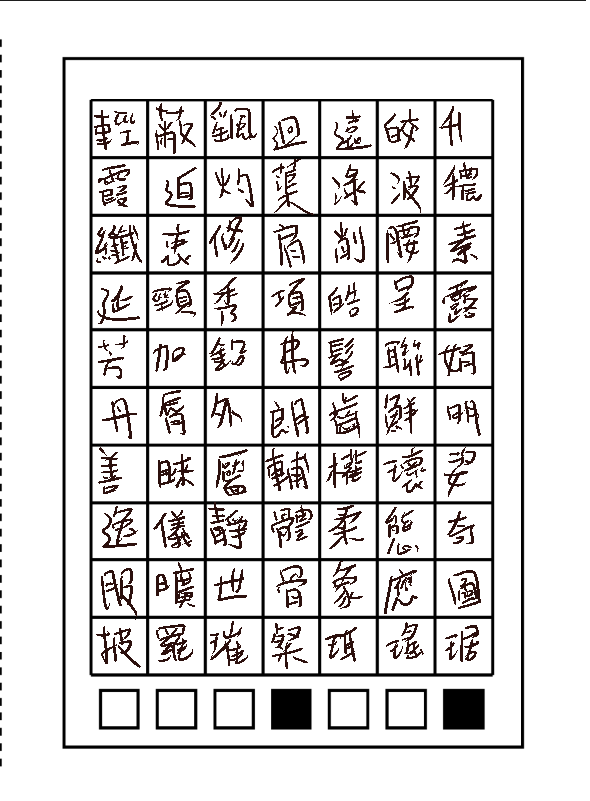 輕蔽颻迴遠皎升
霞迫灼蕖淥波穠
纖衷修肩削腰素
延頸秀項皓呈露
芳加鉛弗髻聯娟
丹脣外朗齒鮮明
善睞靨輔權瓌姿
逸儀靜體柔態奇
服曠世骨象應圖
披羅璀粲珥瑤琚